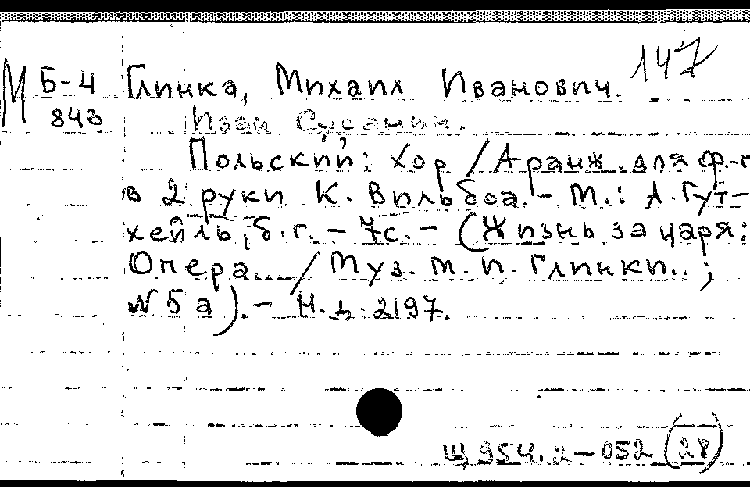 147
М Б-4 Глинка, Михаил Иванович.
843 Иван Сусанин.
Польский: Хор / Аранж. для ф-п
в 2 руки К. Вильбоа. - М.: А. Гут-
хейль, б.г. - 7с. - (Жизнь за царя:
Опера... / Муз. М. И. Глинки.. ;
№ 5а). - Н.д. 2197.
Щ 954.2-052 (28)